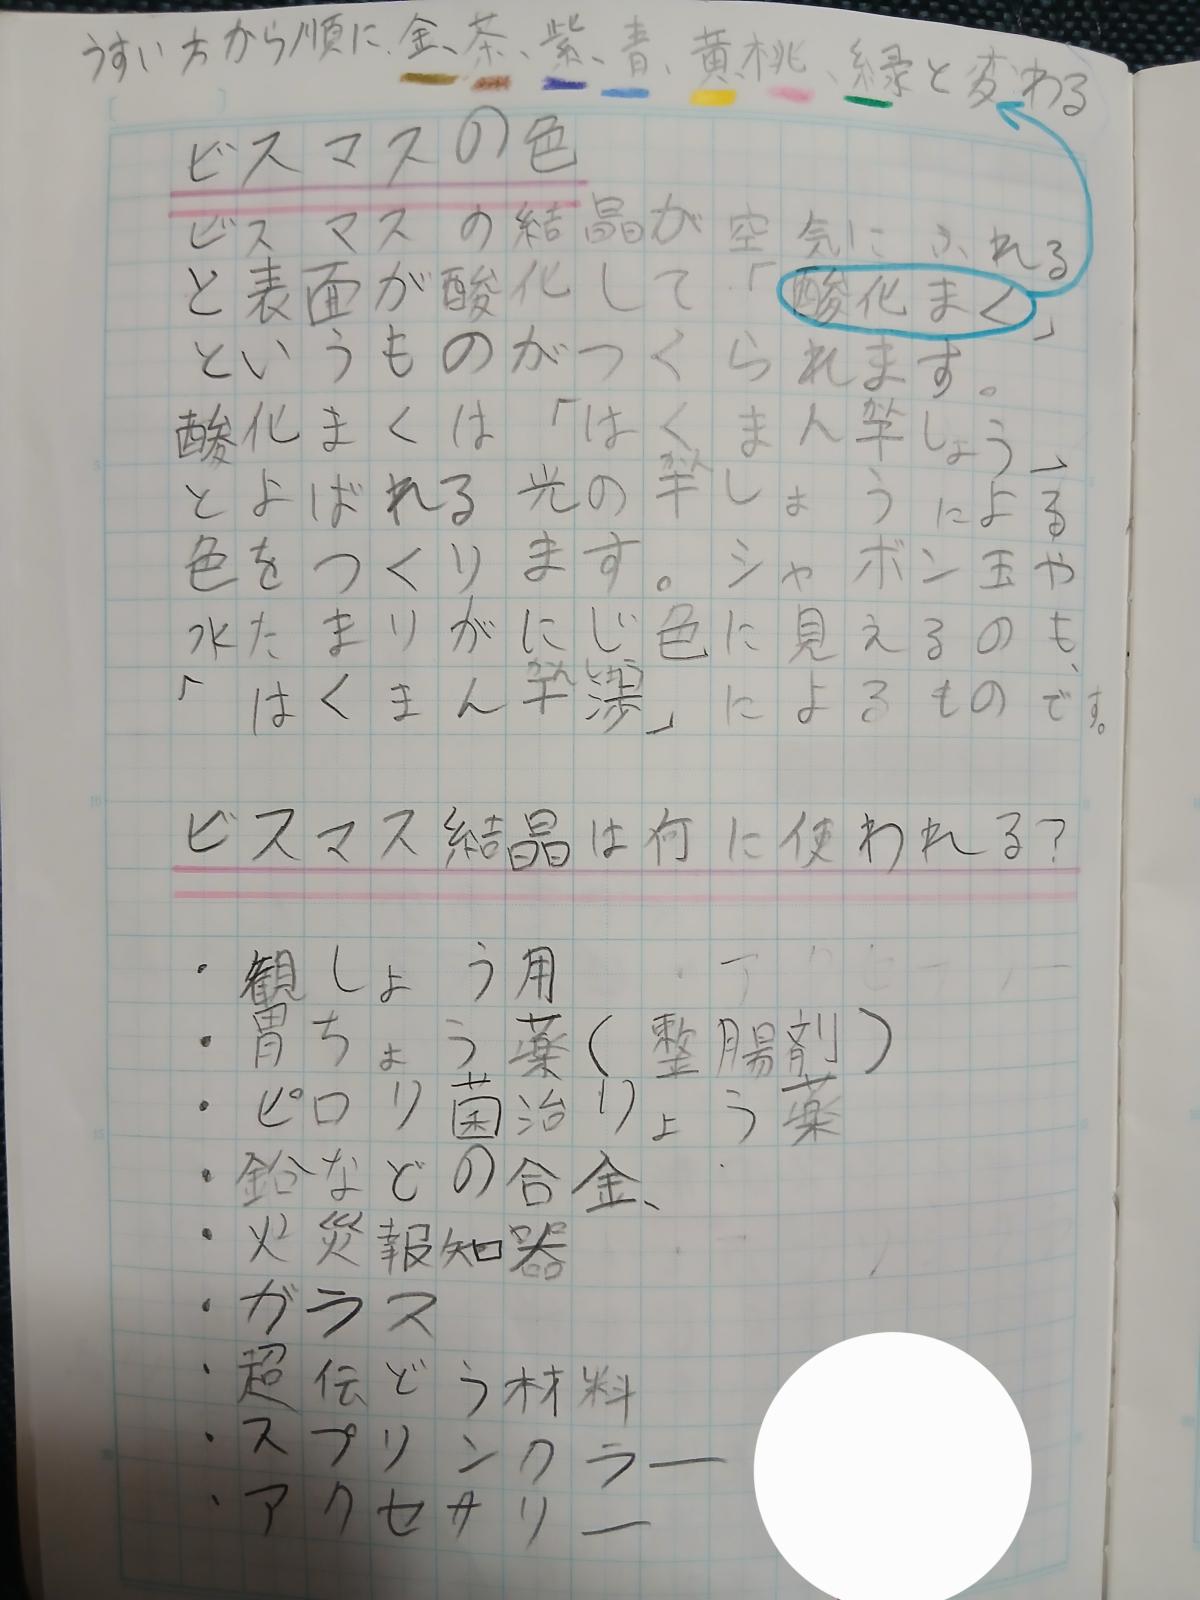 うすい方から順に、金、茶、紫、青、黄、桃、緑と変わる
ビスマスの色
ビスマスの結晶が空気にふれる
と表面が酸化して「酸化まく」
というものがつくられます。
酸化まくは「はくまん竿しょう」
とよばれる光の竿しょうによる
色をつくります。シャボン玉や
水たまりがにじ色に見えるのも、
「はくまん竿渉」によるものです。
ビスマス結晶は何に使われる?
・観しょう用
・胃ちょう薬(整腸剤)
・ピロリ菌治りょう薬
・鉛などの合金、
・火災報知器
・ガラス
・超伝どう材料
・スプリンクラー
・アクセサリー